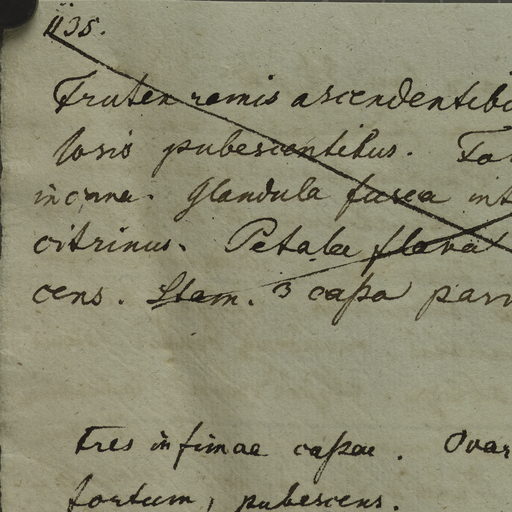 1135.
Frutex ramis ascendentib
losis pubescentibus. Fo
incanae. Glandula fusca int
citrinus. Petala flava
cens. Stam. 3 cassa parv
tres infimae cassae. Ovar
tortum, pubescens.